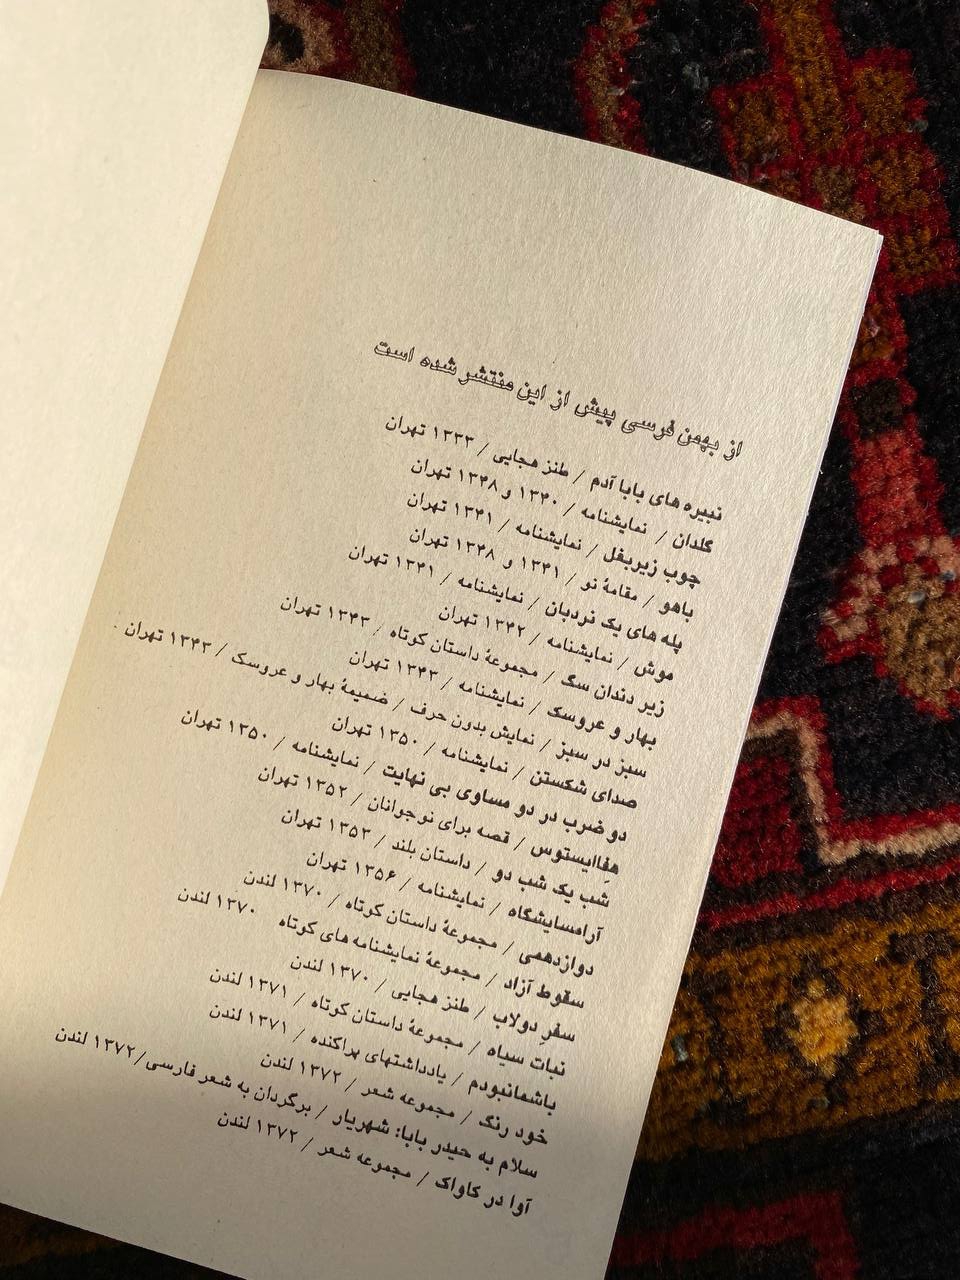 از بهمن فرسی پیش از این منتشر شده است
نبیره های بابا آدم / طنز هجایی / ۱۳۳۳ تهران
گلدان / نمایشنامه / ۱۳۴۰ و ۱۳۴۸ تهران
چوب زیربغل / نمایشنامه / ۱۳۴۱ تهران
باهو / مقامهٔ نو / ۱۳۴۱ و ۱۳۴۸ تهران
پله های یک نردبان / نمایشنامه / ۱۳۴۱ تهران
موش / نمایشنامه / ۱۳۴۲ تهران
زیر دندان سگ / مجموعهٔ داستان کوتاه / ۱۳۴۳ تهران
بهار و عروسک / نمایشنامه / ۱۳۴۳ تهران
سبز در سبز / نمایش بدون حرف / ضمیمهٔ بهار و عروسک / ۱۳۴۳ تهران
صدای شکستن / نمایشنامه / ۱۳۵۰ تهران
دو ضرب در دو مساوی بی نهایت / نمایشنامه / ۱۳۵۰ تهران
هفاایستوس / قصه برای نوجوانان / ۱۳۵۲ تهران
شب یک شب دو / داستان بلند / ۱۳۵۳ تهران
آرامسایشگاه / نمایشنامه / ۱۳۵۶ تهران
دوازدهمی / مجموعهٔ داستان کوتاه / ۱۳۷۰ لندن
سقوط آزاد / مجموعهٔ نمایشنامه های کوتاه ۱۳۷۰ لندن
سفر دولاب / طنز هجایی / ۱۳۷۰ لندن
نبات سیاه / مجموعهٔ داستان کوتاه / ۱۳۷۱ لندن
باشمانبودم / یادداشتهای پراکنده / ۱۳۷۱ لندن
خود رنگ / مجموعه شعر / ۱۳۷۲ لندن
سلام به حیدر بابا: شهریار / برگردان به شعر فارسی/ ۱۳۷۲ لندن
آوا در کاواک / مجموعه شعر / ۱۳۷۲ لندن